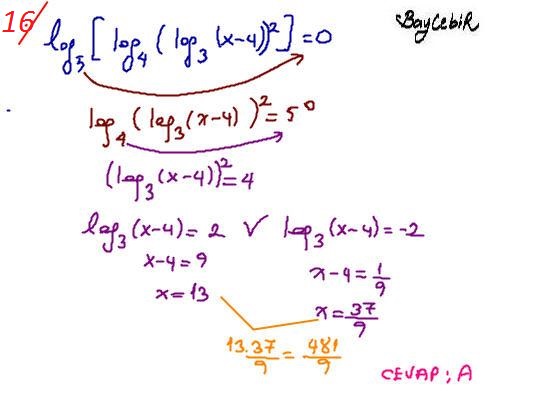 16/ log₅[log₄(log₃(x-4))²]=0
BayCebiR
log₄(log₃(x-4))²=5⁰
(log₃(x-4))²=4
log₃(x-4)=2 ∨ log₃(x-4)=-2
x-4=9 x-4=1/9
x=13 x=37/9
13.37/9=481/9
CEVAP: A